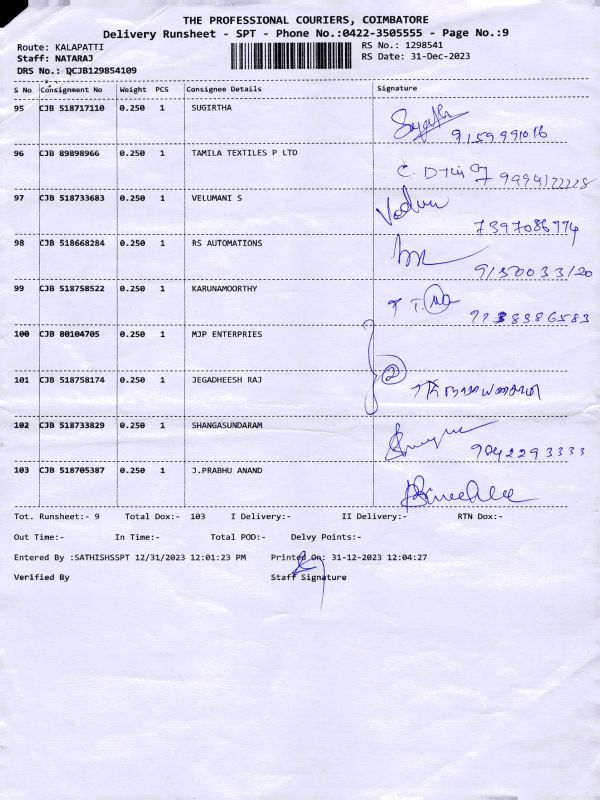 THE PROFESSIONAL COURIERS, COIMBATORE
Delivery Runsheet - SPT - Phone No.:0422-3505555 - Page No.:9
Route: KALAPATTI RS No.: 1298541
Staff: NATARAJ RS Date: 31-Dec-2023
DRS No.: QCJB129854109
S No Consignment No Weight PCS Consignee Details Signature
95 CJB 518717110 0.250 1 SUGIRTHA
9159991016
96 CJB 89898966 0.250 1 TAMILA TEXTILES P LTD
9994122228
97 CJB 518733683 0.250 1 VELUMANI S
7397086774
98 CJB 518668284 0.250 1 RS AUTOMATIONS
9150033120
99 CJB 518758522 0.250 1 KARUNAMOORTHY
100 CJB 80104705 0.250 1 MJP ENTERPRIES
2
101 CJB 518758174 0.250 1 JEGADHEESH RAJ
102 CJB 518733829 0.250 1 SHANGASUNDARAM
9042293333
103 CJB 518705387 0.250 1 J.PRABHU ANAND
Tot. Runsheet:- 9 Total Dox:- 103 I Delivery:- II Delivery:- RTN Dox:-
Out Time:- In Time:- Total POD:- Delvy Points:-
Entered By :SATHISHSSPT 12/31/2023 12:01:23 PM Printed On: 31-12-2023 12:04:27
Verified By Staff Signature